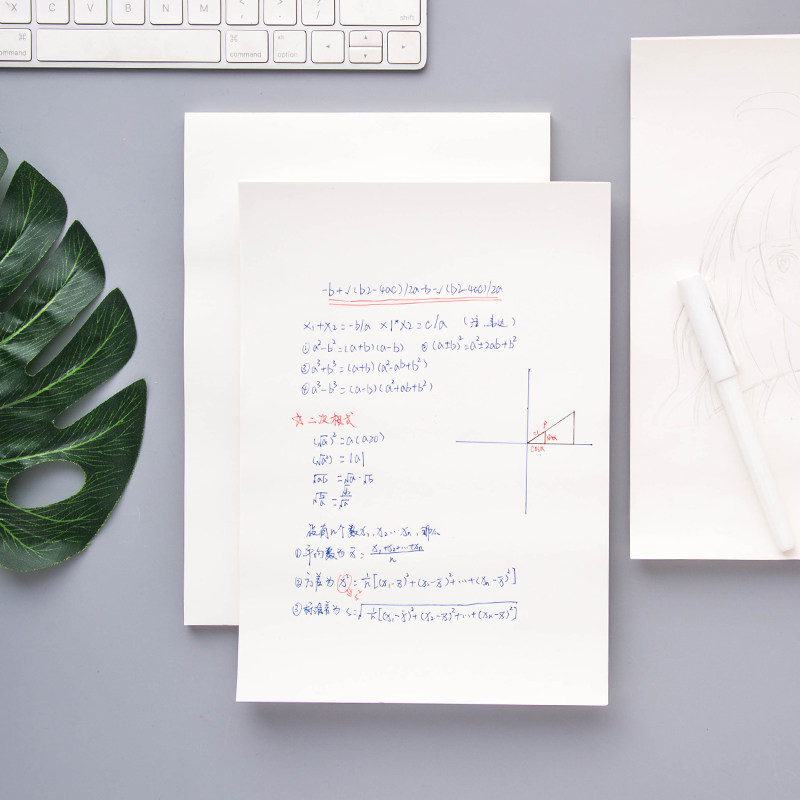 X C V B N M < , > . ? / shift
command ⌘ command ⌘ option
-b+√(b2-4ac)/2a -b-√(b2-4ac)/2a
x₁+x₂=-b/a x1*x2=c/a (注
①a²-b²=(a+b)(a-b) ②(a±b)²=a²±2ab+b²
③a³+b³=(a+b)(a²-ab+b²)
④a³-b³=(a-b)(a²+ab+b²)
☆二次根式
(√a)²=a(a≥0)
(√a²)=|a|
√ab=√a·√b
P
设有n个数x₁,x₂…xn,那么
①平均数为x̄=x₁+x₂+…+xn/n
②方差为s²=1/n[(x₁-x̄)²+(x₂-x̄)²+…+(xn-x̄)²]
③标准差为s=√1/n[(x₁-x̄)²+(x₂-x̄)²+…+(xn-x̄)²]